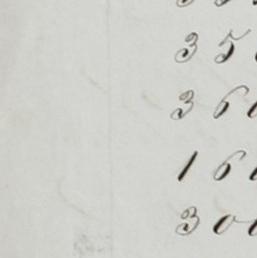 35
36
16
30